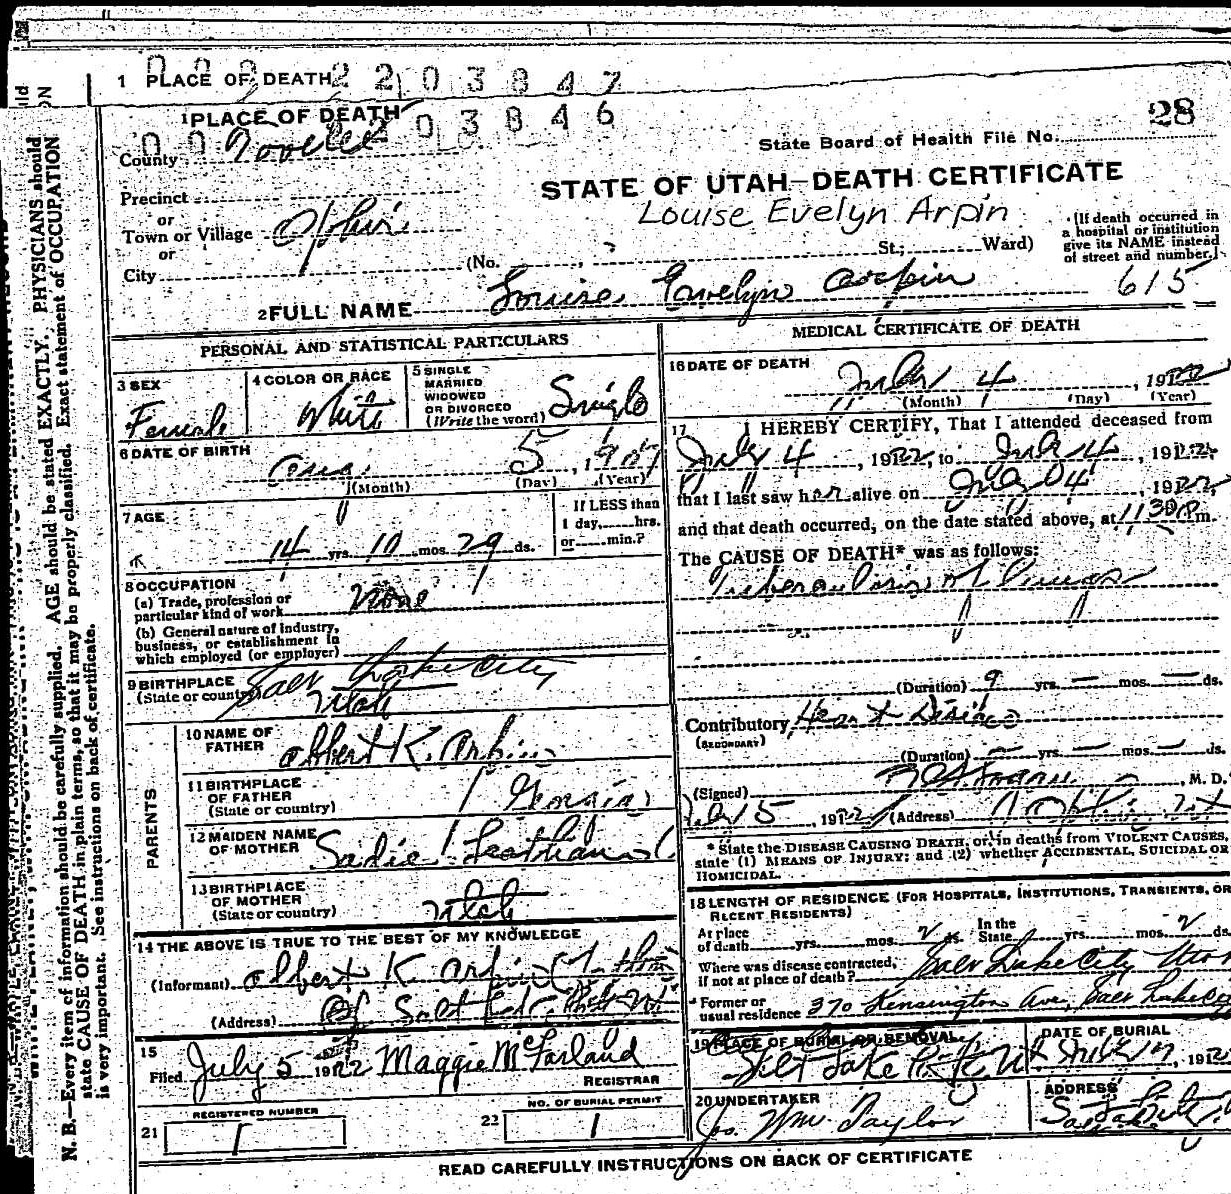 1 PLACE OF DEATH 2 2 0 3 8 4 7
1 PLACE OF DEATH 2 0 3 8 4 6
28
County Tooele
State Board of Health File No.
Precinct
STATE OF UTAH—DEATH CERTIFICATE
or
Louise Evelyn Arpin
Town or Village Ophir
or
City (No. St; Ward)
(If death occurred in a hospital or institution give its NAME instead of street and number.)
615
2 FULL NAME Louise Evelyn Arpin
PERSONAL AND STATISTICAL PARTICULARS
3 SEX
Female
4 COLOR OR RACE
White
5 SINGLE
MARRIED
WIDOWED
OR DIVORCED
(Write the word) Single
6 DATE OF BIRTH
Aug. 5, 1907
(Month) (Day) (Year)
7 AGE
14 yrs. 10 mos. 29 ds.
If LESS than
1 day,......hrs.
or......min.?
8 OCCUPATION
(a) Trade, profession or
particular kind of work None
(b) General nature of industry,
business, or establishment in
which employed (or employer)
9 BIRTHPLACE
(State or country) Salt Lake City
Utah
PARENTS
10 NAME OF
FATHER Albert K. Arpin
11 BIRTHPLACE
OF FATHER
(State or country)
12 MAIDEN NAME
OF MOTHER Sadie
13 BIRTHPLACE
OF MOTHER
(State or country) Utah
14 THE ABOVE IS TRUE TO THE BEST OF MY KNOWLEDGE
(Informant) Albert K. Arpin
(Address) Of Salt
15
Filed July 5 1922 Maggie McFarland
REGISTRAR
REGISTERED NUMBER
21 1
NO. OF BURIAL PERMIT
22 1
MEDICAL CERTIFICATE OF DEATH
16 DATE OF DEATH
July 4, 1922
(Month) (Day) (Year)
17 I HEREBY CERTIFY, That I attended deceased from
July 4, 1922, to July 4, 1922,
that I last saw her alive on July 4, 1922,
and that death occurred, on the date stated above, at 11 30 P m.
The CAUSE OF DEATH* was as follows:
Tuberculosis of Lungs
(Duration) 9 yrs. — mos. — ds.
Contributory Heart Disease
(SECONDARY)
(Duration) — yrs. — mos. — ds.
(Signed) M. D.
July 5, 1922 (Address) Ophir
* State the DISEASE CAUSING DEATH, or, in deaths from VIOLENT CAUSES, state (1) MEANS OF INJURY; and (2) whether ACCIDENTAL, SUICIDAL OR HOMICIDAL.
18 LENGTH OF RESIDENCE (FOR HOSPITALS, INSTITUTIONS, TRANSIENTS, OR RECENT RESIDENTS)
At place
of death yrs. mos. 2 ds.
In the
State yrs. mos. 2 ds.
Where was disease contracted,
if not at place of death? Salt Lake City Utah
Former or
usual residence 370 Kensington Ave, Salt Lake City
19 PLACE OF BURIAL OR REMOVAL
Salt Lake
DATE OF BURIAL
July 1922
20 UNDERTAKER
Jos. Wm Taylor
ADDRESS
READ CAREFULLY INSTRUCTIONS ON BACK OF CERTIFICATE
N. B.—Every item of information should be carefully supplied. AGE should be stated EXACTLY. PHYSICIANS should
state CAUSE OF DEATH in plain terms, so that it may be properly classified. Exact statement of OCCUPATION
is very important. See instructions on back of certificate.